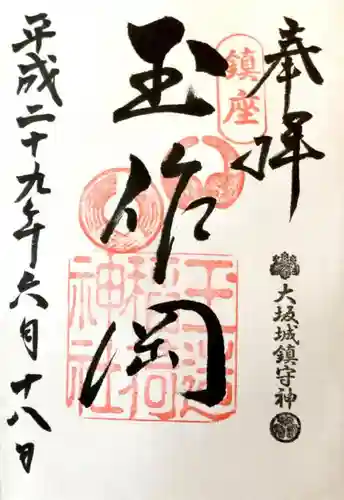 奉拝
鎮座
大坂城鎮守神
玉作岡
玉造稲荷神社
平成二十九年六月十八日